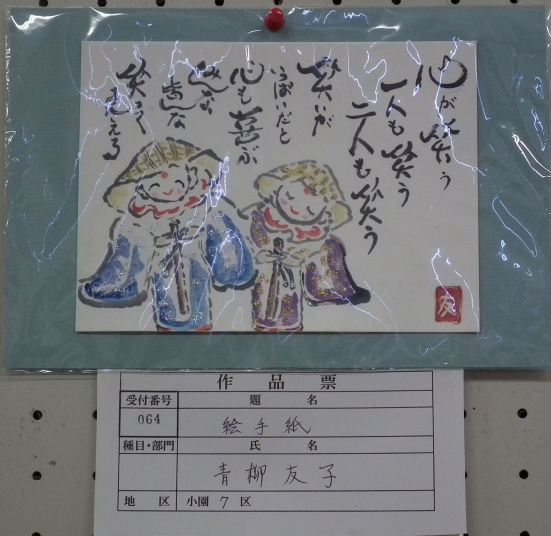 心が笑う
一人も笑う
二人も笑う
笑いが
いっぱいだと
心も喜ぶ
笑って
見える
友
作品票
受付番号 題名
064 絵手紙
種目・部門 氏名
青柳友子
地区 小園7区